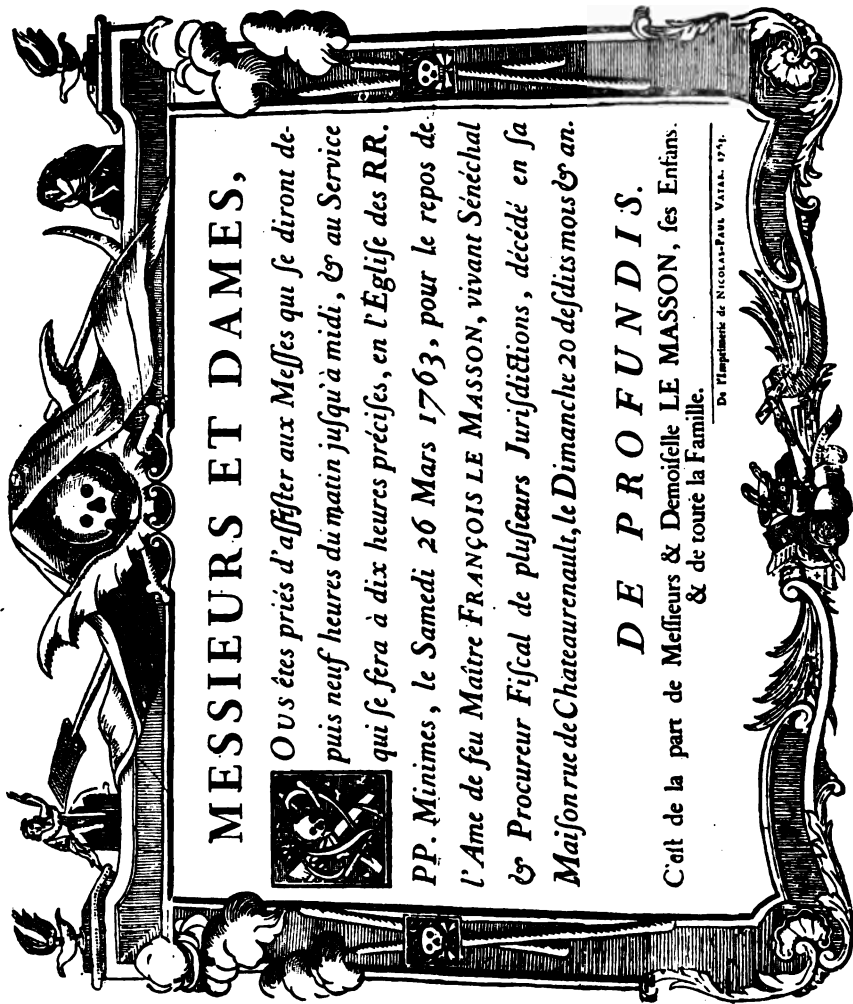 MESSIEURS ET DAMES,
VOUS êtes priés d'aſſiſter aux Meſſes qui ſe diront de-
puis neuf heures du matin juſqu'à midi, & au Service
qui ſe fera à dix heures préciſes, en l'Égliſe des RR.
PP. Minimes, le Samedi 26 Mars 1763, pour le repos de
l'Ame de feu Maître FRANÇOIS LE MASSON, vivant Sénéchal
& Procureur Fiſcal de pluſieurs Juriſdictions, décédé en ſa
Maiſon rue de Chateaurenault, le Dimanche 20 deſdits mois & an.
DE PROFUNDIS.
C'eſt de la part de Meſſieurs & Demoiſelle LE MASSON, ſes Enfans.
& de toute la Famille.
De l'Imprimerie de NICOLAS-PAUL VATAR. 1763.